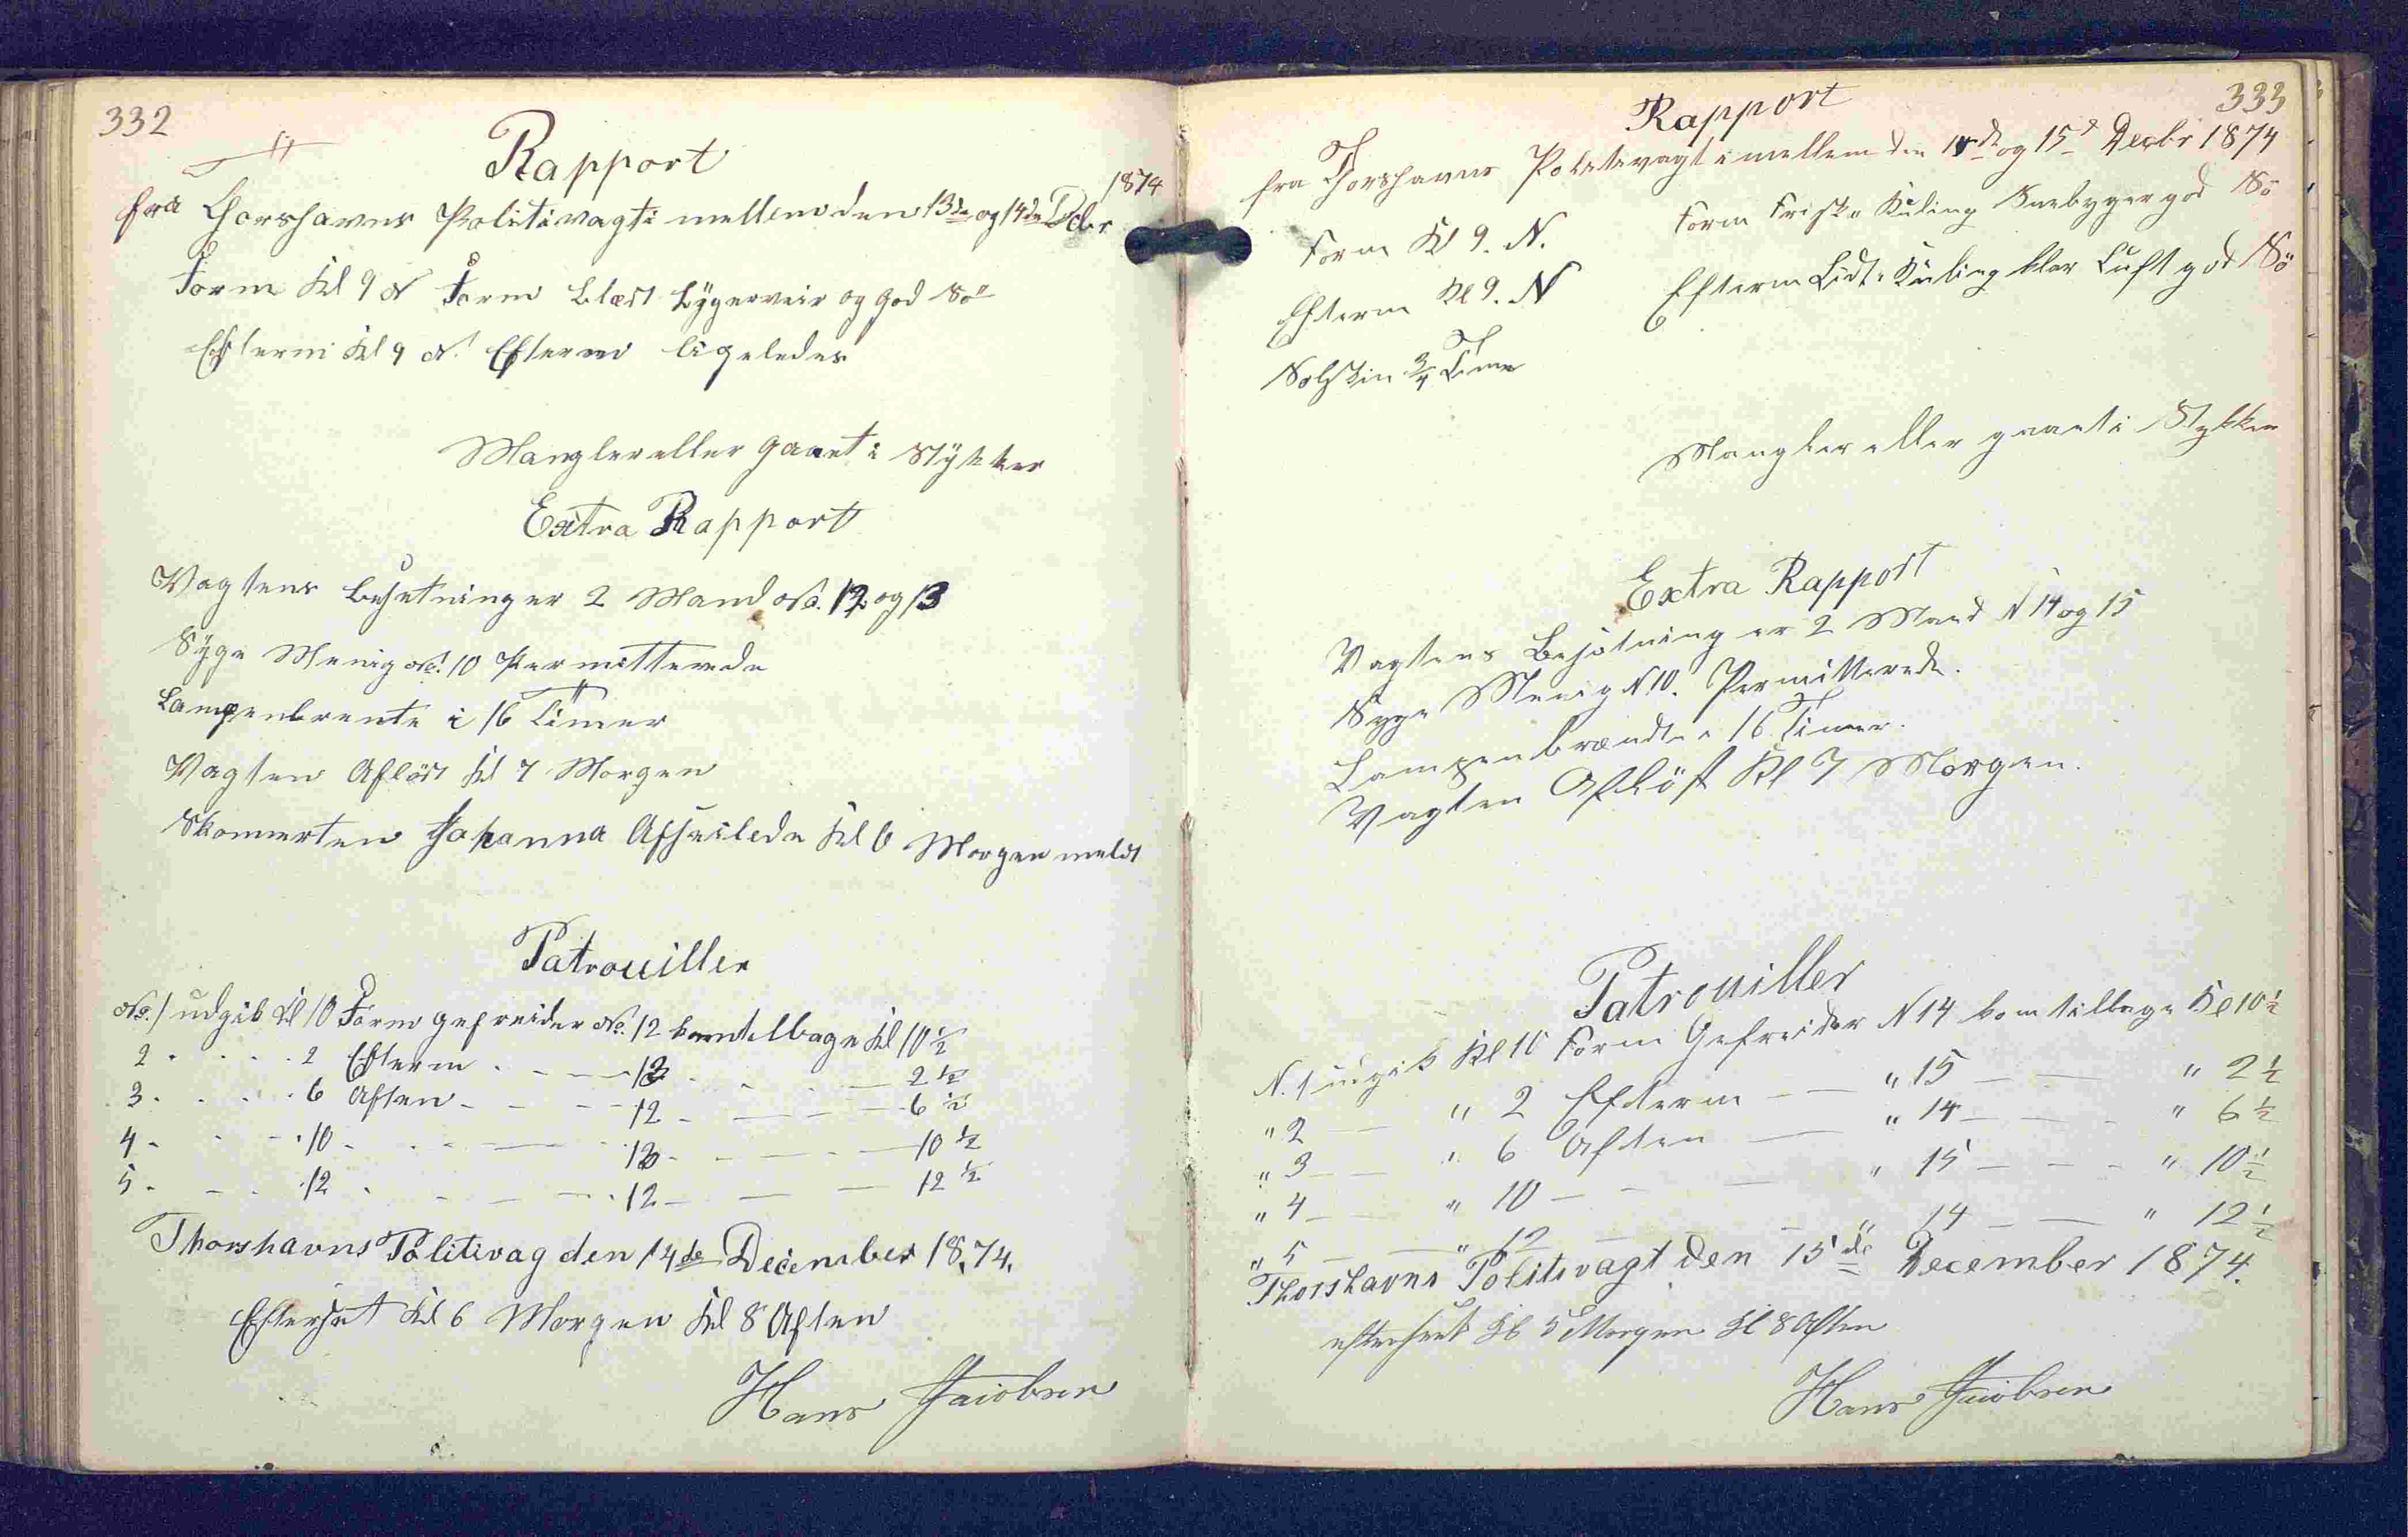 332
Rapport
fra Thorshavns Politivagt i mellem den 13de og 14de Dcbr 1874
Form Kl 9 N Form Blæst Bygerveir og god Sö
Efterm Kl 9 N. Efterm ligeledes
Mangler eller gaaet i Stykker
Extra Rapport
Vagtens Besetning er 2 Mand No. 12 og 13
Syge Menig No. 10 Permitterede
Lampen brente i 16 Timer
Vagten Aflöst Kl 7 Morgen
Skonnerten Johanna Afseilede Kl 6 Morgen meldt
Patrouiller
No. 1 udgik Kl 10 Form gefreider No. 12 kom tilbage Kl 10 ½
2 . . . . 2 Efterm . - - 13 - - - 2 ½
3 . . . . 6 Aften - - - 12 - - - 6 ½
4 - - - 10 - - - 13 - - - 10 ½
5 - - - 12 - - - 12 - - - 12 ½
Thorshavns Politivag den 14de December 1874.
Efterset Kl 6 Morgen Kl 8 Aften
Hans Jacobsen
333
Rapport
fra Thorshavns Politivagt i mellem den 14de og 15d Decbr 1874
Form Kl 9. N. Form Frisk Kuling Snebyger god Sö
Efterm Kl 9. N Efterm Lidt Kuling klar Luft god Sö
Solskin ¾ Time
Mangler eller gaaet i Stykker
Extra Rapport
Vagtens Besætning er 2 Mand N 14 og 15
Syge Menig N 10. Permitterede.
Lampen brændte i 16 Timer.
Vagten Aflöst Kl 7 Morgen.
Patrouiller
N. 1 udgik Kl 10 Form Gefreider N 14 kom tilbage Kl 10 ½
" 2 — " 2 Efterm — — " 15 — — " 2 ½
" 3 — " 6 Aften — " 14 — — " 6 ½
" 4 — " 10 — — — " 15 — — " 10 ½
" 5 — — " 12 — — " 14 — — " 12 ½
Thorshavns Politivagt den 15de December 1874.
efterseet Kl 5 Morgen Kl 8 Aften
Hans Jacobsen